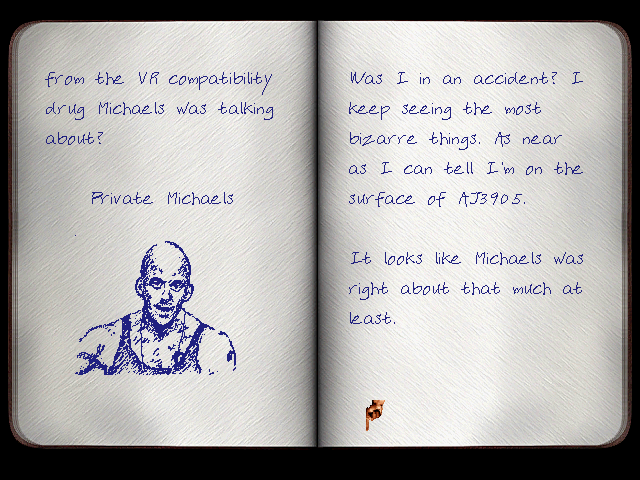 from the VR compatibility
drug Michaels was talking
about?
Private Michaels
Was I in an accident? I
keep seeing the most
bizarre things. As near
as I can tell I'm on the
surface of AJ3905.
It looks like Michaels was
right about that much at
least.